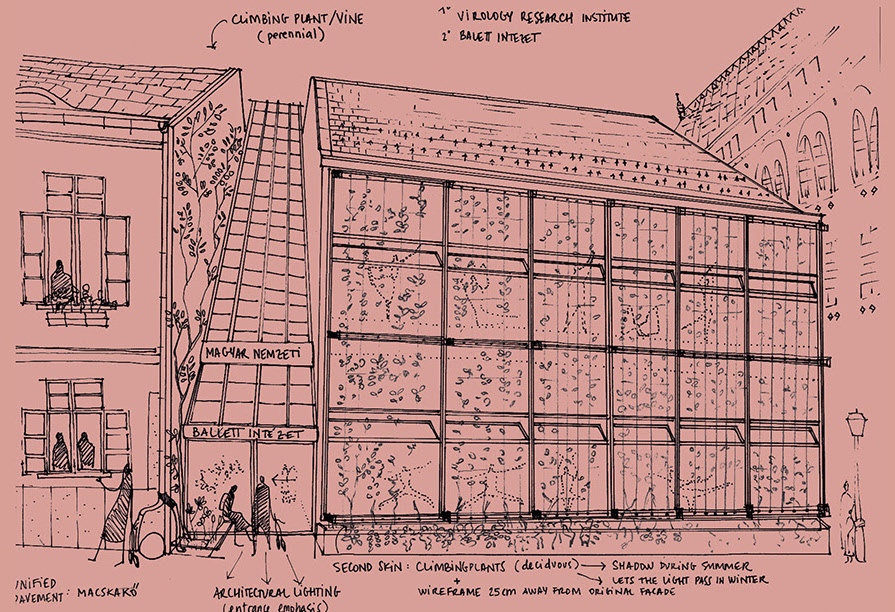 CLIMBING PLANT/VINE
(perennial)
1° VIROLOGY RESEARCH INSTITUTE
2° BALETT INTEZET
MAGYAR NEMZETI
BALLETT INTEZET
UNIFIED
PAVEMENT: MACSKAKŐ
ARCHITECTURAL LIGHTING
(entrance emphasis)
SECOND SKIN: CLIMBINGPLANTS (deciduous) → SHADOW DURING SUMMER
→ LETS THE LIGHT PASS IN WINTER
+
WIREFRAME 25cm AWAY FROM ORIGINAL FACADE